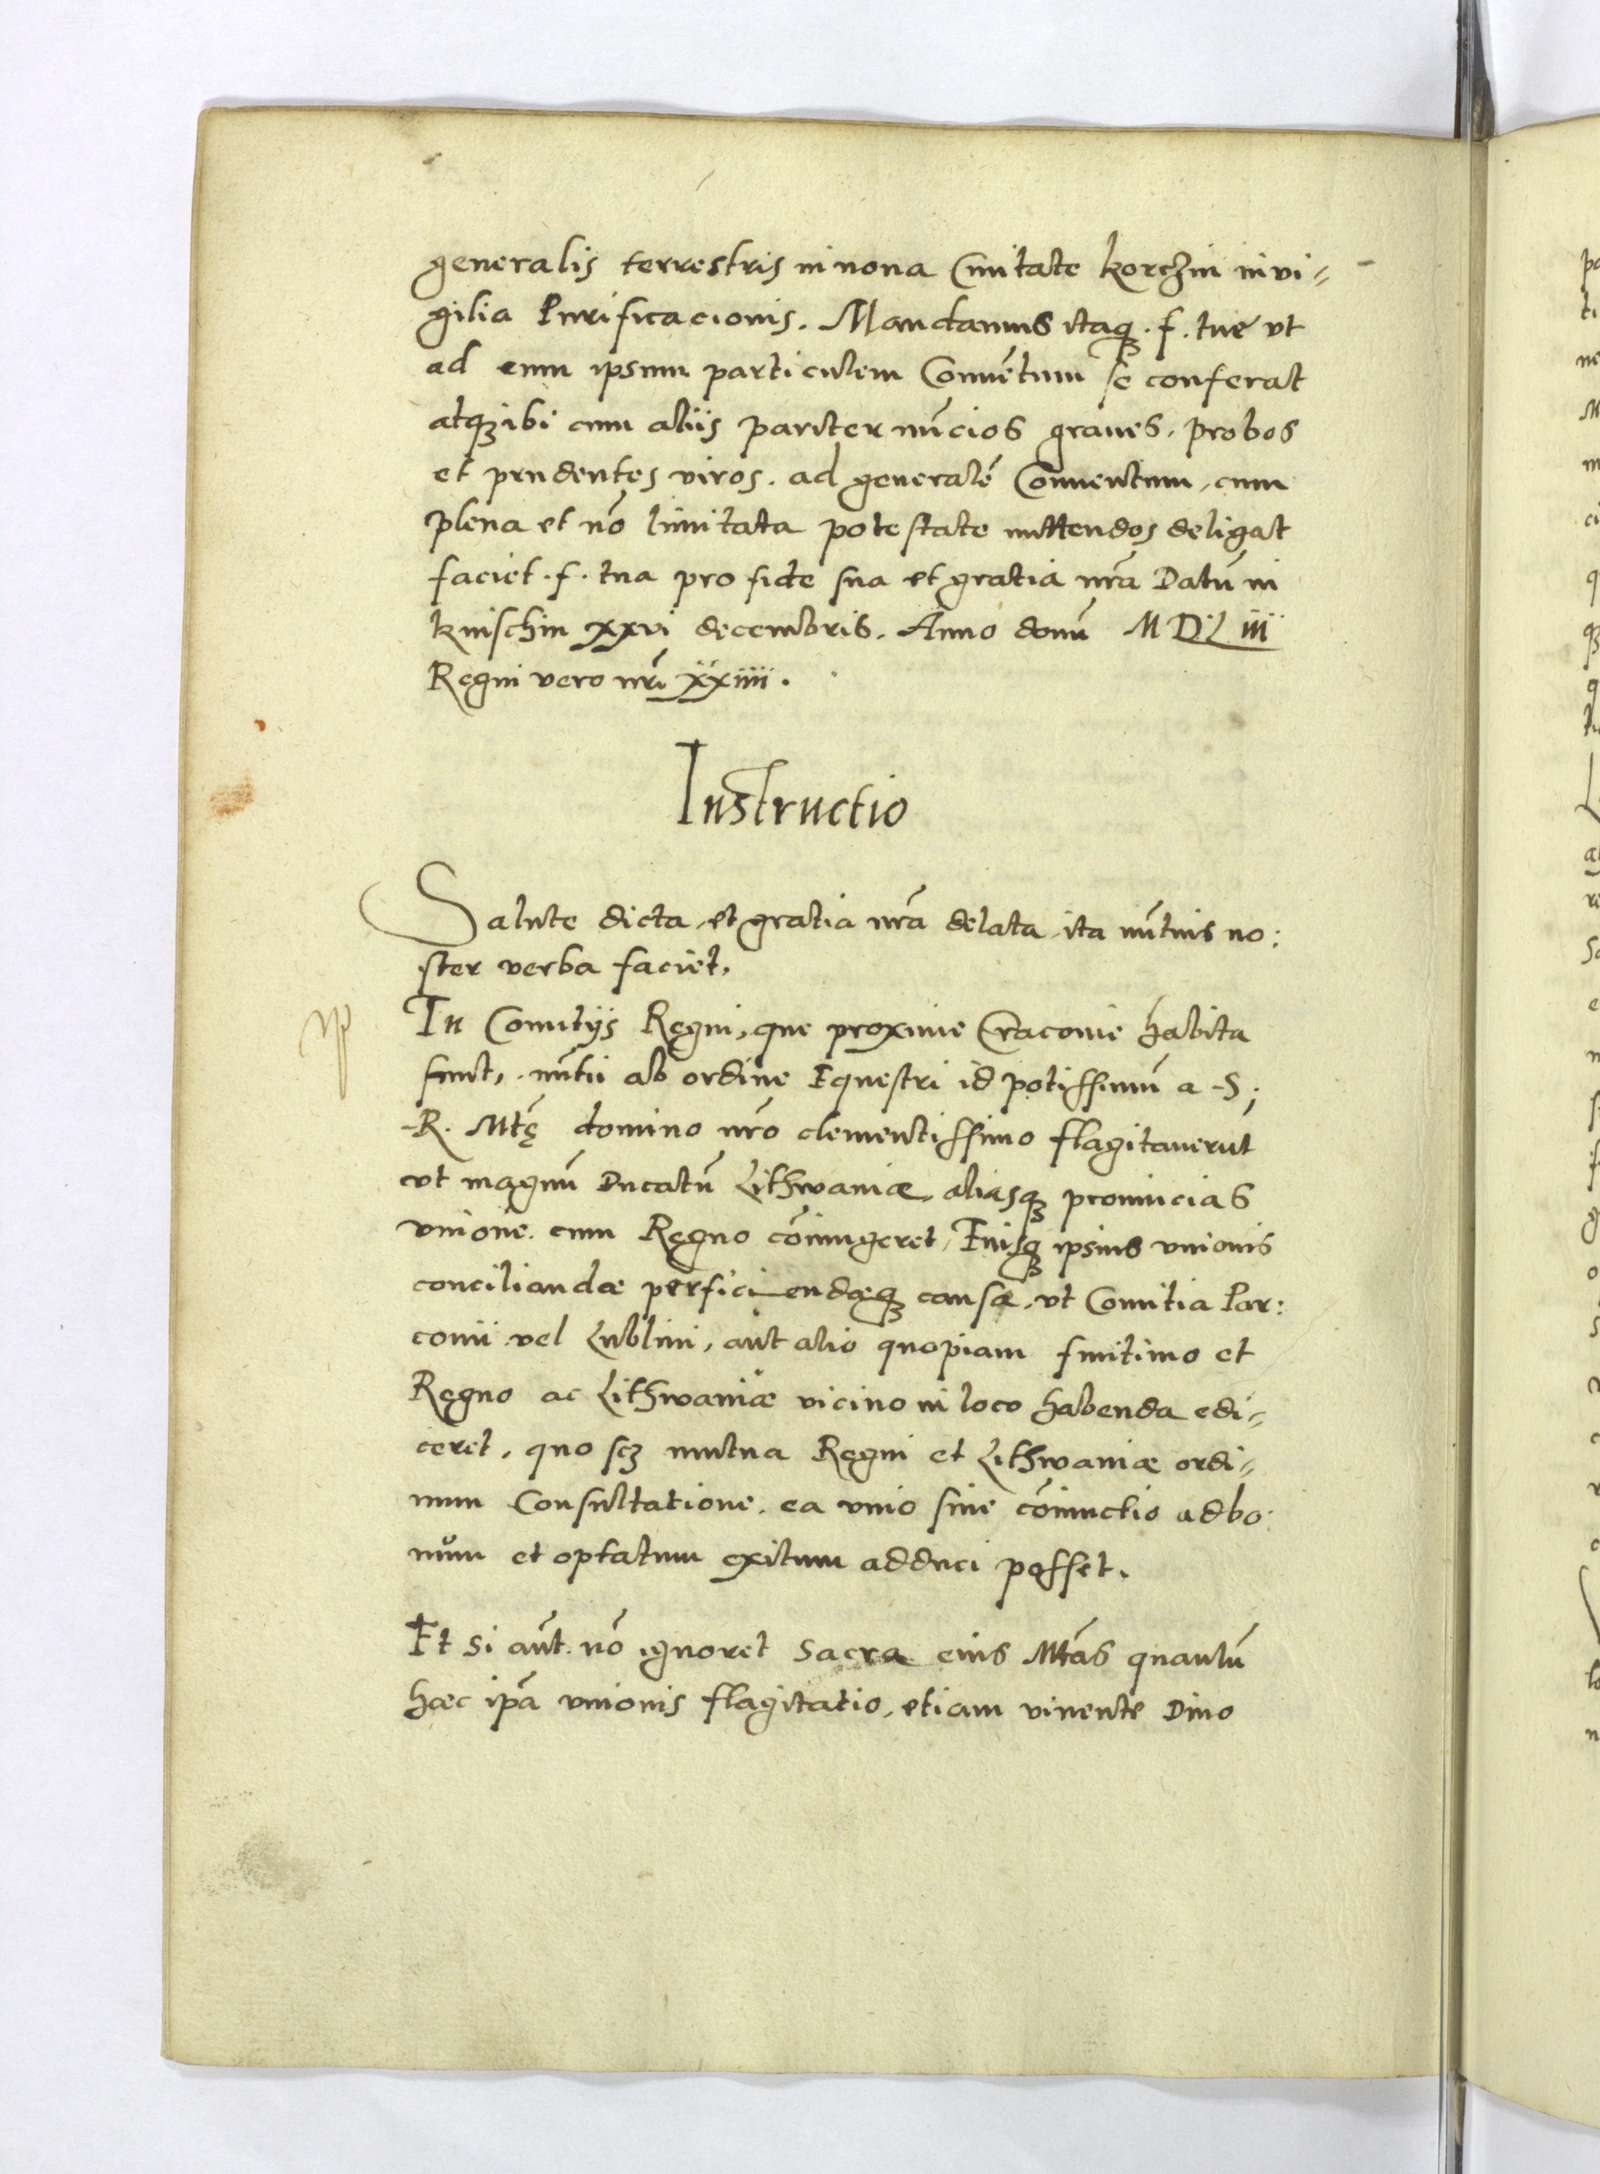 generalis terrestris in noua Ciuitate korczin in vi-
gilia Purificacionis. Mandamus itaq3. f. tuę vt
ad eum ipsum particulem Conuētum se conferat
atq3 ibi cum aliis pariter nūcios graues, probos
et prudentes viros. ad generalē Conuentum, cum
plena et nō limitata potestate mittendos deligat
faciet. f. tua pro fide sua et gratia nrā Datū in
knischin xxvi decembris. Anno domī M D L iii
Regni vero nrī xxiiii.
Instructio
Salute dicta, et gratia nrā delata, ita nūtius no:
ster verba faciet.
In Comitijs Regni, que proxime Cracouie habita
sunt, nūtii ab ordine Equestri id potissimū a S:
R. Mtē domino nrō clementissimo flagitauerūt
vt magnū Ducatū Lithwaniæ, aliasq3 prouincias
vnione cum Regno cōiungeret, Eiusq3 ipsius vnionis
conciliandæ perficiendæq3 causa, vt Comitia Par:
couii vel Lublini, aut alio quopiam finitimo et
Regno ac Lithwaniæ vicino in loco habenda edi-
ceret, quo sc3 mutua Regni et Lithwaniæ ordi-
num Consultatione, ea vnio siue cōiunctio ad bo:
nům et optatum exitum adduci posset.
Et si aūt nō ignoret Sacra eius Mtās quantū
hæc ipā vnionis flagitatio, etiam viuente Diuo